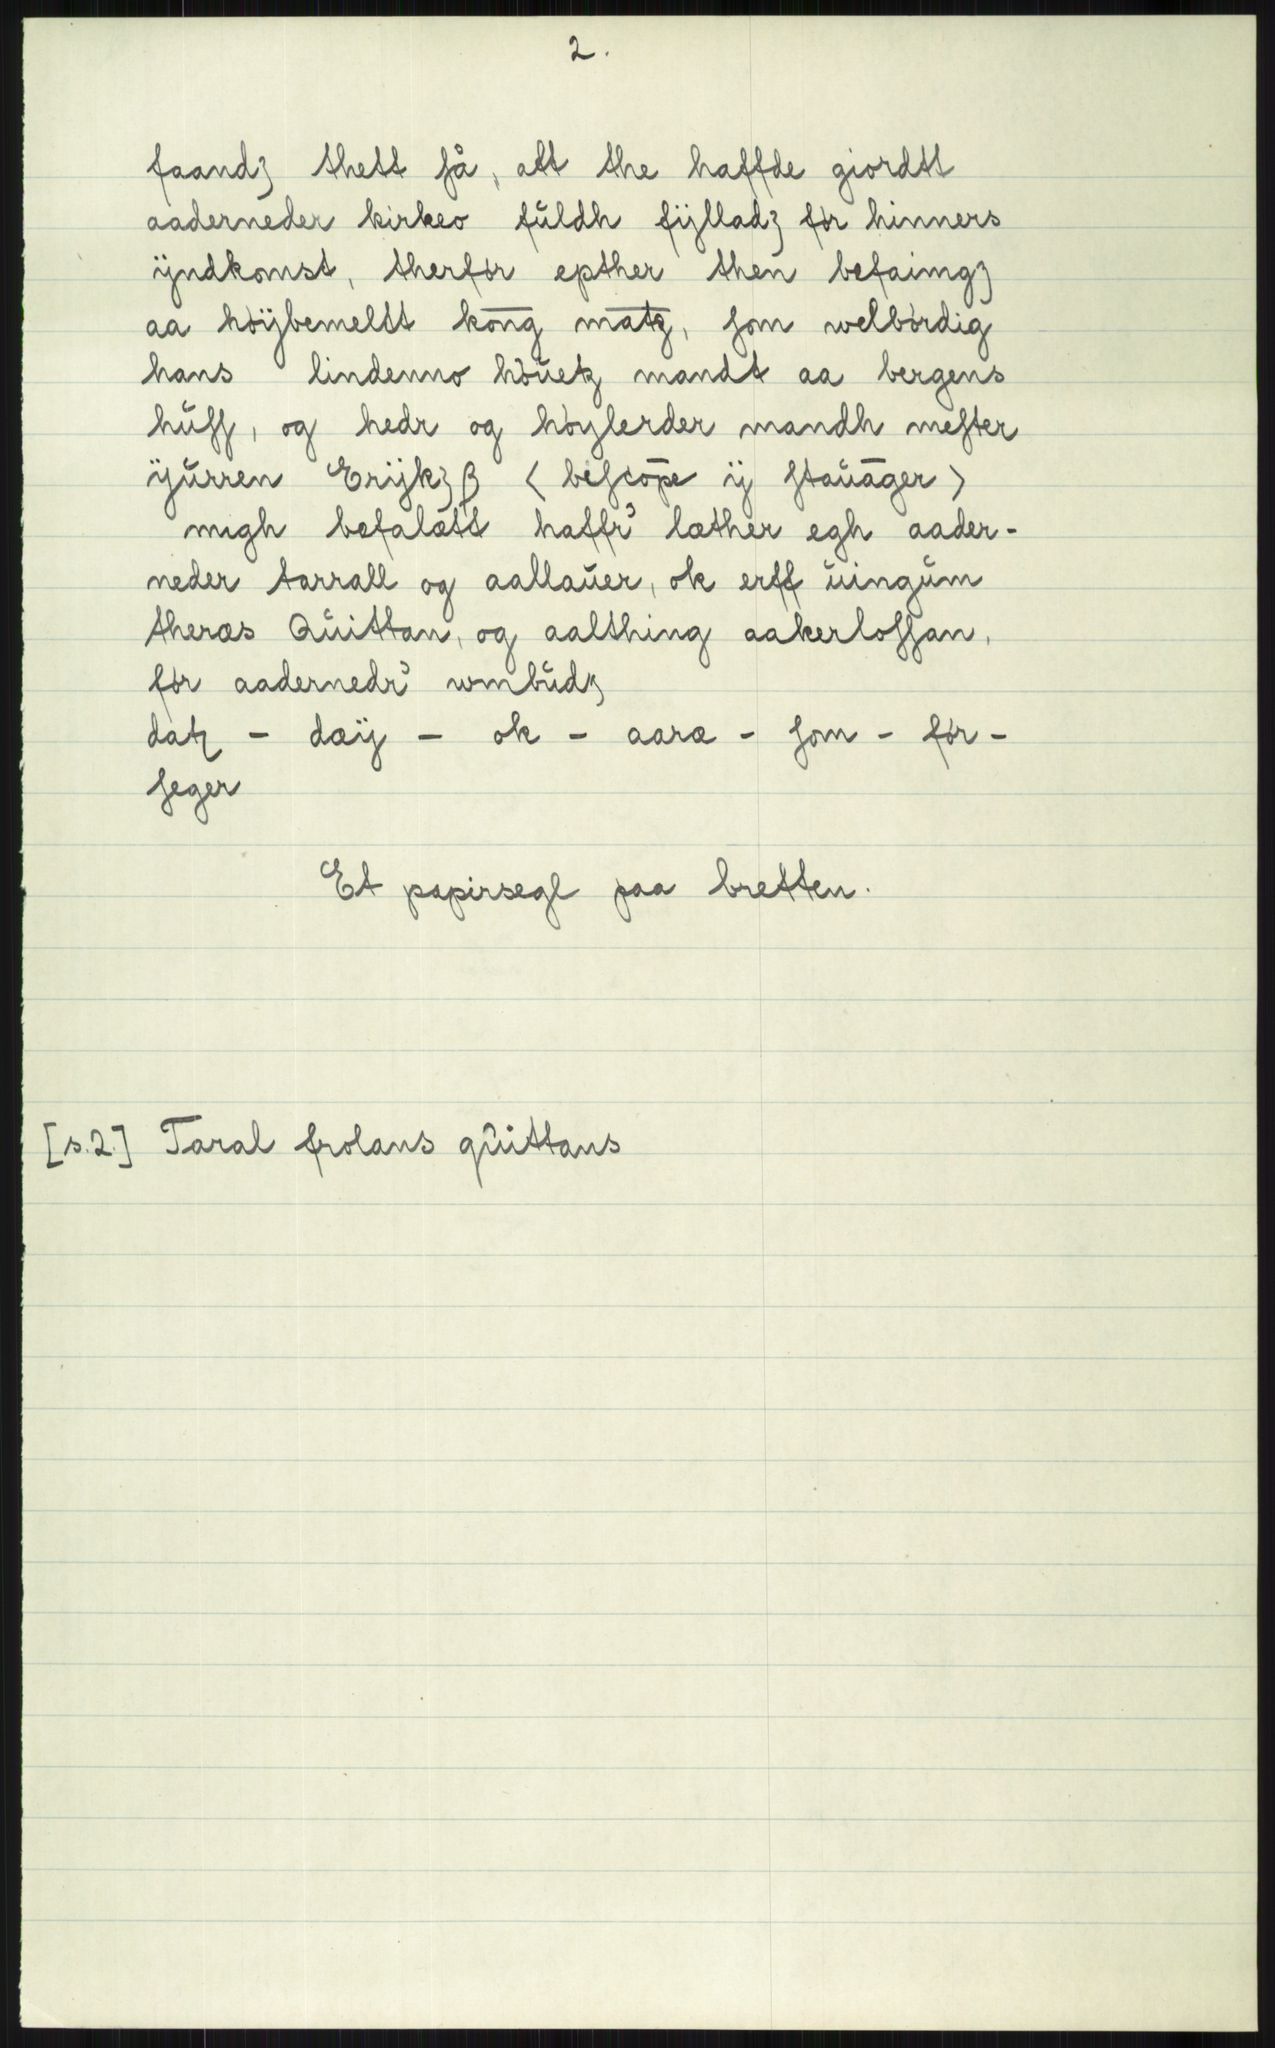 2.
faandꝫ thett ſå, att the haffde giordtt
aaderneder kirkeo fŭldh fÿlladꝫ før hinners
ÿndkomst, therfør epther then befaimgꝫ
aa høÿbemeltt kōng mātꝫ, ſom welbørdig
hans lindenno høŭetꝫ mandt aa bergens
hŭſſ, og hedr og høylerder mandh meſter
ÿŭrren Erijkꝫβ < beſcōpe ÿ ſtaŭāger >
migh befalætt haffr³ læther egh aader-
neder tarrall og aallaŭer, ok erff ŭingŭm
theræs Qŭittan, og aalthing aakerloſſan,
før aadernedr³ wmbŭdꝫ
datꝫ - dæÿ - ok - aara - ſom - før -
ſeger
Et papirsegl paa bretten.
[s.2.] Taral frolans qŭittans